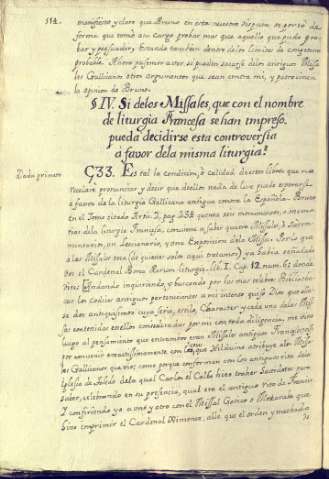 112.
manifiesto, y claro que Bruno en esta nuestra disputa se portó de
forma que tomó a su cargo probar mas que aquello que puda pro-
bar y persuadir, estando tambien dentro de los limites de conjetura
probable. Ahora pasemos a ver, si pueden sacarse delos antiguos Missa-
les Gallicanos otros argumentos que sean contra mi, y patrocinen
la opinion de Bruno.
§. IV. Si delos Missales, que con el nombre
de liturgia Francesa se han impreso,
pueda decidirse esta controversia
à favor dela misma liturgia?
Duda primera
§33. Es tal la condicion, ò calidad de estos libros que
pronunciar, y decir que de ellos nada de luz puede
a favor de la liturgia Gallicana antigua contra la Española.
en el Tomo citado pag. 238 quenta seis monumentos, o memo-
rias dela liturgia Francesa, conviene a saber quatro Missales,
un Lectionario, y una Exposicion dela Missa. Pero que
a los Missales tres (de quienes solo aqui tratamos) ya habia señalado
el Cardenal Bona Rerum liturgic. lib. I. Cap. 12. num. 6. donde
inquiriendo, y buscando por las mas celebres Bibliote-
cas los Codices antiguos pertenecientes a mi intento quiso Dios que
se dos antiquissimos cuya serie, estilo, Character y cada una delas Mis-
sas contenidas en ellos considerados por mi con toda diligencia, me vino
luego al pensamiento que eran Missales antiguos Francescos
por convenir exactissimamente con lo que Hilduino atribuye alos Missa-
les Gallicanos; que vió como porque conforman con los antiguos ritos dela
Iglesia de Toledo dela qual Carlos el Calbo hizo trahar Sacerdotes para
saber, celebrando en su presencia, qual era el antiguo rito de Francia.
Y confiriendo ya a uno y otro con el Missal Gotico o Mozarabe que
hizo imprimir el Cardenal Ximenez, allé que el orden, y